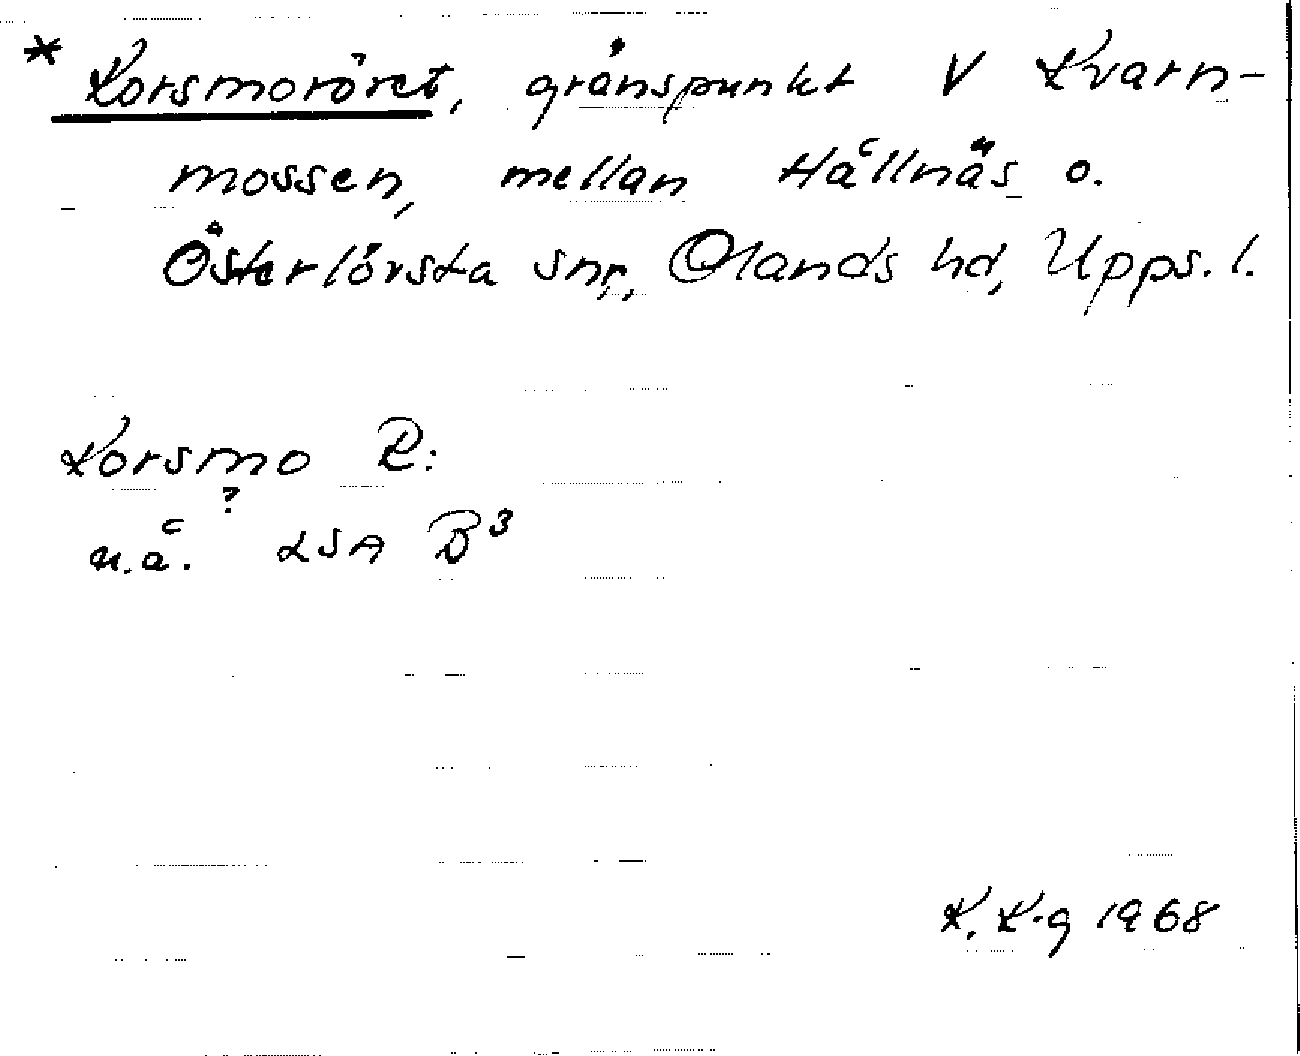 * Korsmoröret, gränspunkt V Kvarn-
mossen, mellan Hållnäs o.
Österlövsta snr, Olands hd, Upps. l.
Korsmo R:
?
u.å. LSA B³
K. K-g 1968